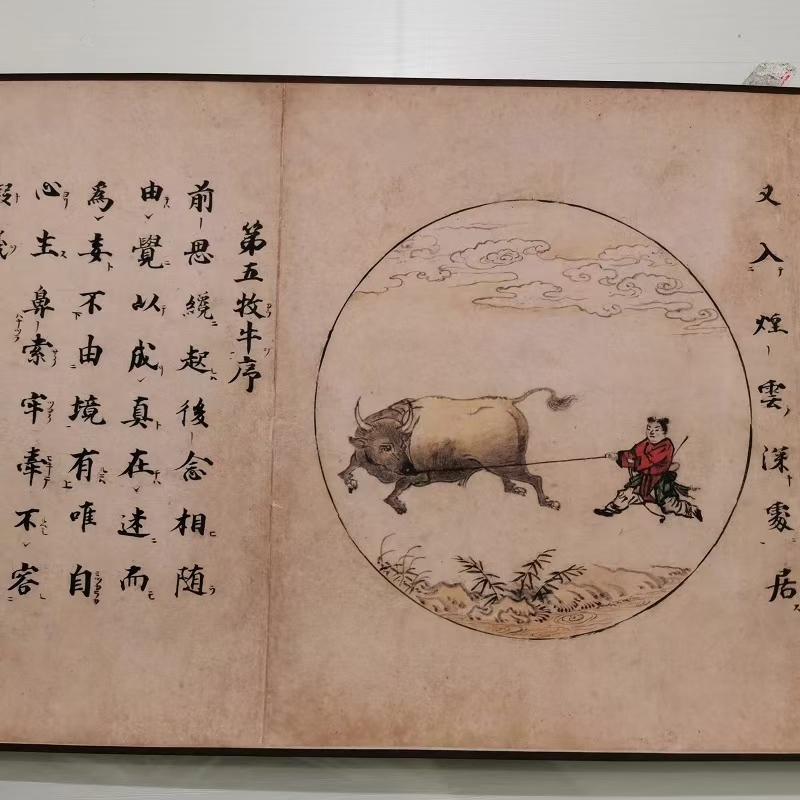 又入煙雲深處居
第五牧牛序
前思纔起後念相随
由覺以成真在迷而
為妄不由境有唯自
心生鼻索牢牽不容